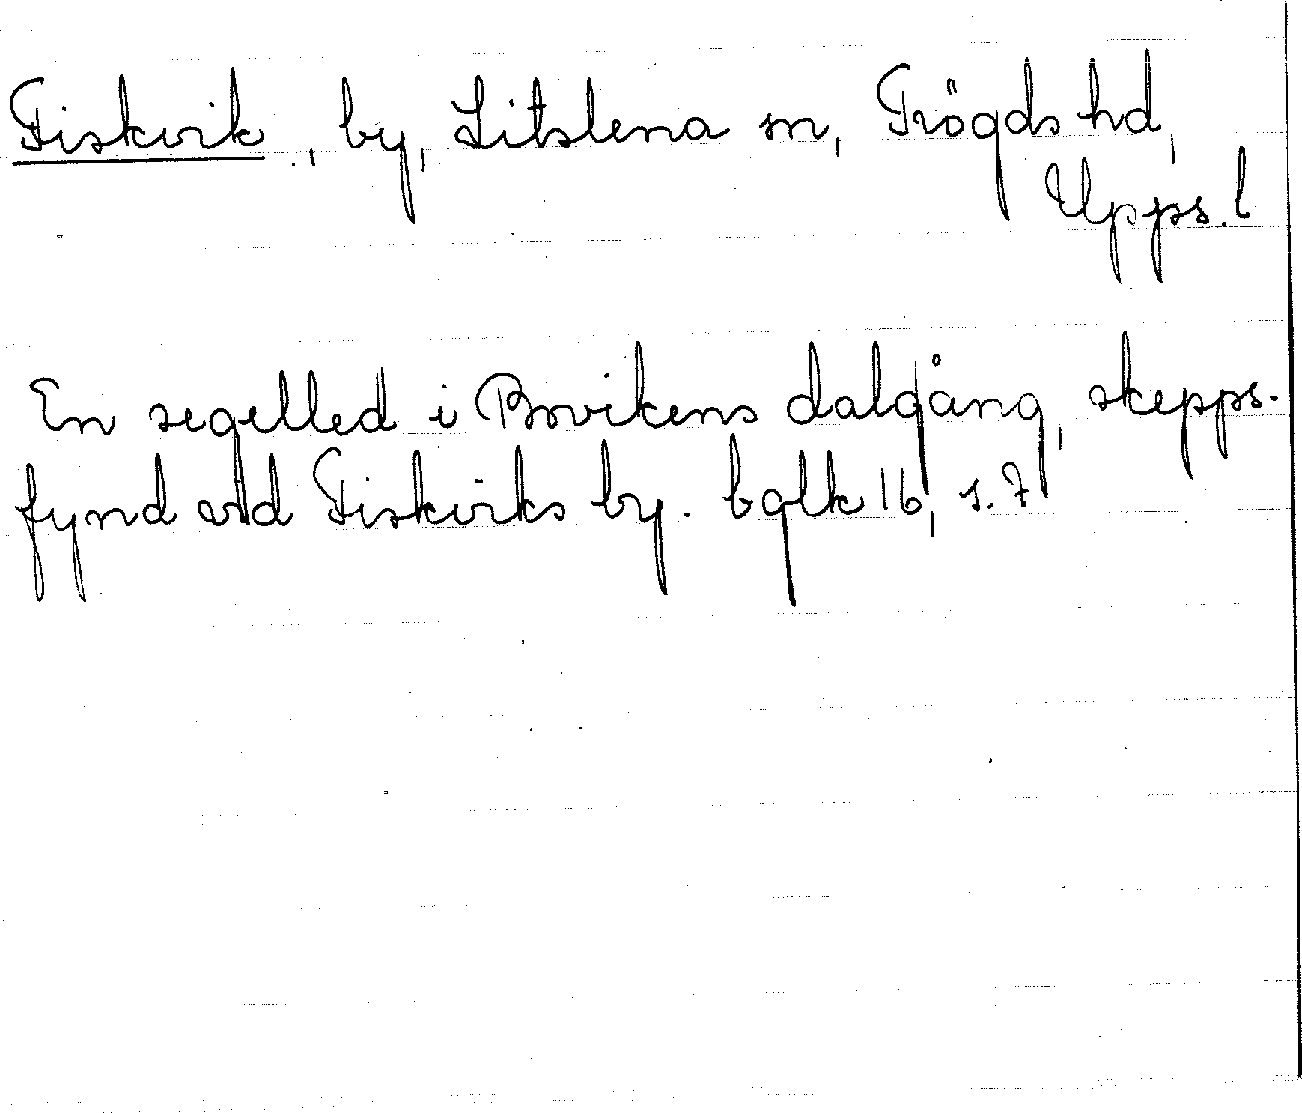 Fiskvik, by, Litslena sn, Trögds hd,
Upps. l
En segelled i Brovikens dalgång, skepps-
fynd vid Fiskviks by. bglk 16, s. 7